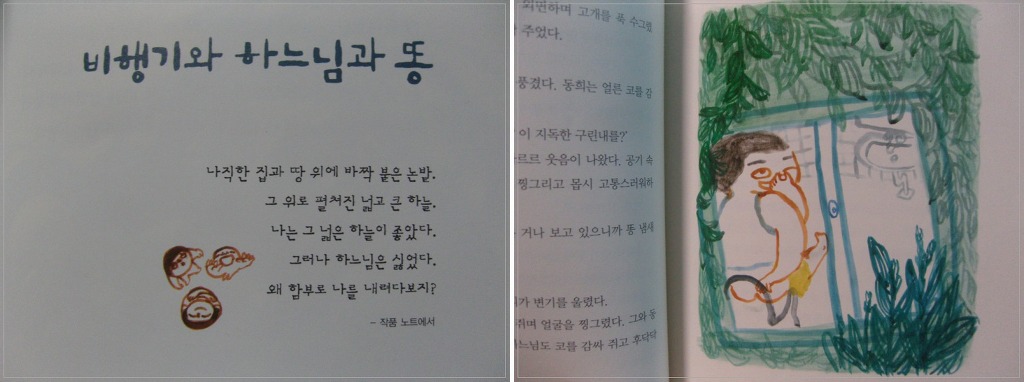 비행기와 하느님과 똥
나직한 집과 땅 위에 바짝 붙은 논밭.
그 위로 펼쳐진 넓고 큰 하늘.
나는 그 넓은 하늘이 좋았다.
그러나 하느님은 싫었다.
왜 함부로 나를 내려다보지?
- 작품 노트에서
외면하며 고개를 푹 수그렸
주었다.
풍겼다. 동희는 얼른 코를 감
이 지독한 구린내를?'
르르 웃음이 나왔다. 공기 속
찡그리고 몹시 고통스러워하
거나 보고 있으니까 똥 냄새
가 변기를 올렸다.
쥐며 얼굴을 찡그렸다. 그와 동
느님도 코를 감싸 쥐고 후닥닥